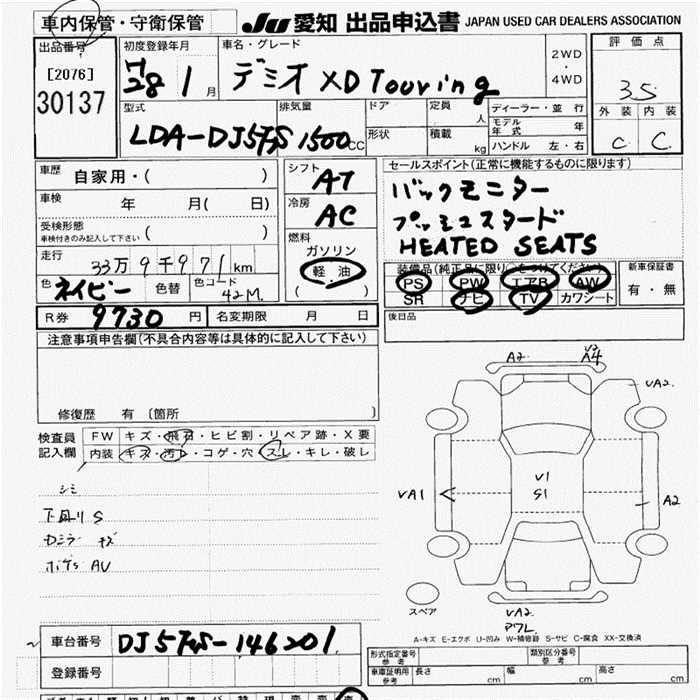 車内保管・守衛保管
JU 愛知 出品申込書 JAPAN USED CAR DEALERS ASSOCIATION
出品番号
[2076]
30137
初度登録年月
H28 1 月
車名・グレード
デミオ XD Touring
2WD
・
4WD
評価点
3.5
外装 内装
C C
型式
LDA-DJ5FS
排気量
1500 CC
ドア
形状
定員
人
積載
kg
ディーラー・並行
モデル年式 年
ハンドル 左・右
車歴
自家用・( )
車検
年 月( 日)
受検形態
車検付きのみ記入して下さい ( )
走行
33万9千971km
色 ネイビー 色替 色コード 42M
シフト
AT
冷房
AC
燃料
ガソリン
軽・油
( )
セールスポイント(正常に機能するものに限ります)
バックモニター
プッシュスタート
HEATED SEATS
装備品(純正品に限り○をつけてください)
PS PW エアB AW
SR ナビ TV カワシート
新車保証書
有・無
後日品
R券 9730 円 名変期限 月 日
注意事項申告欄(不具合内容等は具体的に記入して下さい)
修復歴 有〔箇所 〕
検査員
記入欄
FW キズ・飛石・ヒビ割・リペア跡・X要
内装 キズ・汚レ・コゲ・穴・スレ・キレ・破レ
シミ
下回りS
カミラー キズ
ボデーAU
A2
V2
A4
VA2
VA1
V1
S1
A2
スペア
VA2
アワレ
A-キズ E-エクボ U-凹み W-補修跡 S-サビ C-腐食 XX-交換済
車台番号 DJ5FS-146201
登録番号
形式指定番号
参考
類別区分番号
参考
車庫証明用
参考
長さ cm 幅 cm 高さ cm